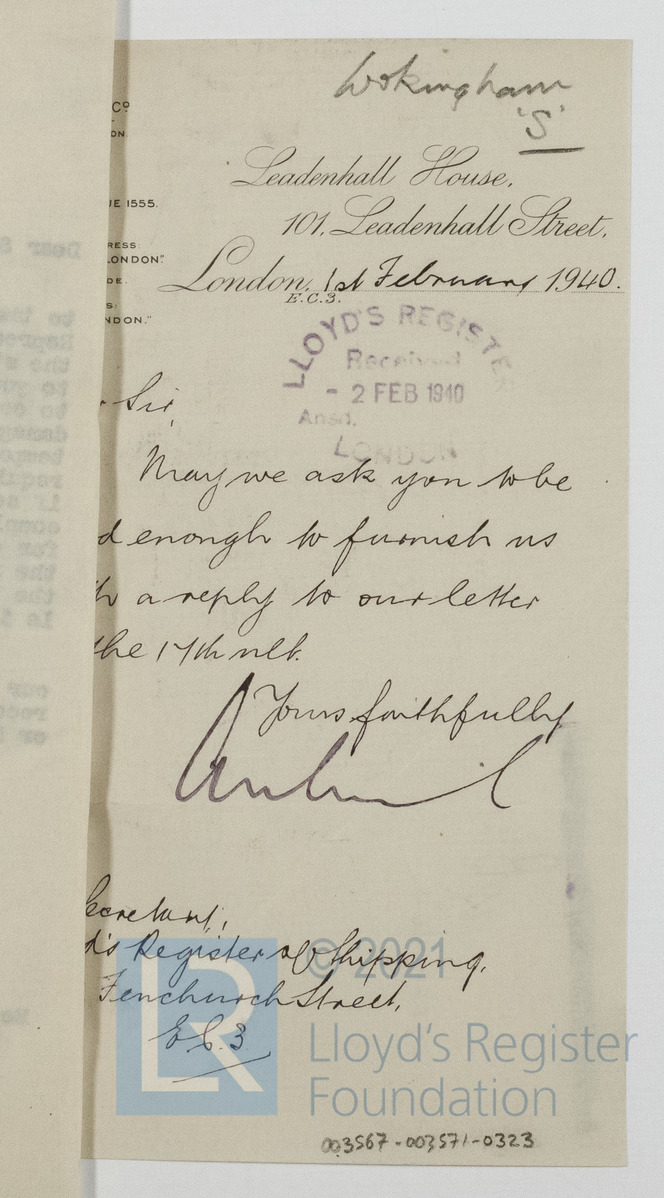 Wokingham
'S'
Co
ON.
Leadenhall House,
101, Leadenhall Street,
UE 1555.
RESS:
LONDON"
DE.
S:
NDON."
London, 1st February 1940.
E.C.3.
LLOYD'S REGISTE
Received
- 2 FEB 1940
Ansd.
LONDON
Sir,
May we ask you to be
d enough to furnish us
h a reply to our letter
the 17th ult.
Yours faithfully
ecretary,
d's Register of Shipping,
Fenchurch Street,
E.C.3
© 2021
LR
Lloyd's Register
Foundation
003567-003571-0323
Dear S
to
the
to
is
our